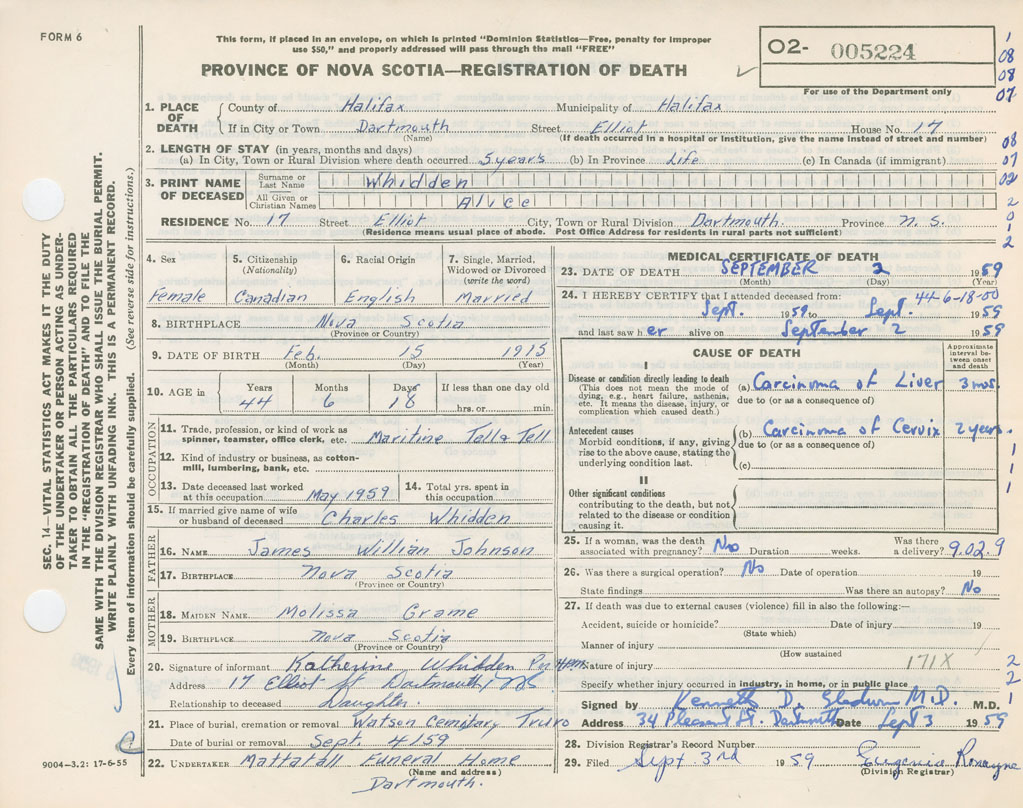 FORM 6
This form, if placed in an envelope, on which is printed "Dominion Statistics—Free, penalty for improper
use $50," and properly addressed will pass through the mail "FREE"
PROVINCE OF NOVA SCOTIA—REGISTRATION OF DEATH
O2- 005224
For use of the Department only
1
08
08
07
08
07
02
2
0
2
SEC. 14—VITAL STATISTICS ACT MAKES IT THE DUTY
OF THE UNDERTAKER OR PERSON ACTING AS UNDER-
TAKER TO OBTAIN ALL THE PARTICULARS REQUIRED
IN THE "REGISTRATION OF DEATH" AND FILE THE
SAME WITH THE DIVISION REGISTRAR WHO SHALL ISSUE THE BURIAL PERMIT.
WRITE PLAINLY WITH UNFADING INK. THIS IS A PERMANENT RECORD.
Every item of information should be carefully supplied. (See reverse side for instructions.)
1. PLACE OF DEATH County of Halifax Municipality of Halifax
If in City or Town Dartmouth Street Elliot House No. 17
(Name) (If death occurred in a hospital or institution, give the name instead of street and number)
2. LENGTH OF STAY (in years, months and days)
(a) In City, Town or Rural Division where death occurred 5 years (b) In Province Life (c) In Canada (if immigrant)
3. PRINT NAME OF DECEASED Surname or Last Name Whidden
All Given or Christian Names Alice
RESIDENCE No. 17 Street Elliot City, Town or Rural Division Dartmouth. Province N. S.
(Residence means usual place of abode. Post Office Address for residents in rural parts not sufficient)
4. Sex 5. Citizenship (Nationality) 6. Racial Origin 7. Single, Married, Widowed or Divorced (write the word)
Female Canadian English Married
8. BIRTHPLACE Nova Scotia
(Province or Country)
9. DATE OF BIRTH Feb. 15 1915
(Month) (Day) (Year)
10. AGE in Years Months Days If less than one day old
44 6 18 hrs. or min.
OCCUPATION
11. Trade, profession, or kind of work as spinner, teamster, office clerk, etc. Maritine Tell & Tell
12. Kind of industry or business, as cotton-mill, lumbering, bank, etc.
13. Date deceased last worked at this occupation May 1959 14. Total yrs. spent in this occupation
15. If married give name of wife or husband of deceased Charles Whidden
FATHER
16. NAME James William Johnson
17. BIRTHPLACE Nova Scotia
(Province or Country)
MOTHER
18. MAIDEN NAME Molissa Grame
19. BIRTHPLACE Nova Scotia
(Province or Country)
20. Signature of informant Katherine Whidden
Address 17 Elliot St Dartmouth, NS
Relationship to deceased Daughter.
21. Place of burial, cremation or removal Watson Cemitary Truro
Date of burial or removal Sept. 4/59
22. UNDERTAKER Mattatall Funeral Home
(Name and address)
Dartmouth.
9004—3.2: 17-6-55
MEDICAL CERTIFICATE OF DEATH
23. DATE OF DEATH SEPTEMBER 2 1959
(Month) (Day) (Year)
44-6-18-00
24. I HEREBY CERTIFY that I attended deceased from:
Sept. 1959 to Sept. 1959
and last saw her alive on September 2 1959
CAUSE OF DEATH
Approximate interval between onset and death
I
Disease or condition directly leading to death
(This does not mean the mode of dying, e.g., heart failure, asthenia, etc. It means the disease, injury, or complication which caused death.)
(a) Carcinoma of Liver 3 mos.
due to (or as a consequence of)
Antecedent causes
Morbid conditions, if any, giving rise to the above cause, stating the underlying condition last.
(b) Carcinoma of Cervix 2 years.
due to (or as a consequence of)
(c)
1
1
1
II
Other significant conditions
contributing to the death, but not related to the disease or condition causing it.
25. If a woman, was the death associated with pregnancy? No Duration weeks. Was there a delivery? 9.02.9
26. Was there a surgical operation? No Date of operation 19
State findings Was there an autopsy? No
27. If death was due to external causes (violence) fill in also the following:—
Accident, suicide or homicide? Date of injury 19
(State which)
Manner of injury
(How sustained
Nature of injury 171X
Specify whether injury occurred in industry, in home, or in public place
2
2
1
Signed by Kenneth D. M.D. M.D.
Address 34 Pleasant St. Dartmouth Date Sept 3 1959
28. Division Registrar's Record Number
29. Filed Sept 3rd 1959 Eugenia
(Division Registrar)